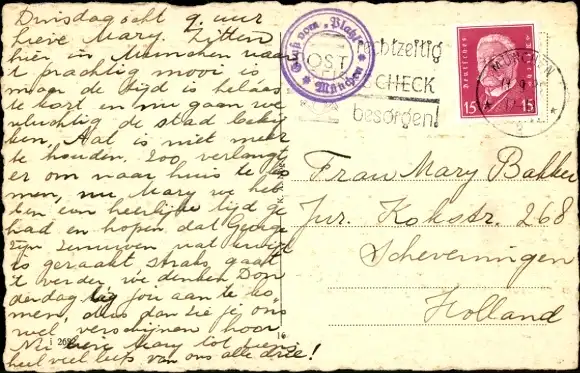 Dinsdagocht 9. uur
Lieve Mary. Zitten
hier in Munchen waar
't prachtig mooi is
maar de tijd is helaas
te kort en nu gaan we
vluchtig de stad bekij
ken. Aal is niet meer
te houden. Zoo verlangt
er om naar huis te ko
men, nu Mary we heb
ben een heerlijke tijd ge
had en hopen dat George
zijn zenuwen wat
is geraakt straks gaat
't verder, we denken Don
derdag bij jou aan te ko
men, dus dan zie je ons
wel verschijnen hoor
Mary tot ziens
heel veel liefs van ons alle drie!
Gruß vom Platzl
München
OST
rechtzeitig
SCHECK
besorgen!
Deutsches
15 15
MÜNCHEN
Frau Mary Bakker
Jur. Kokstr. 268
Scheveningen
Holland
16